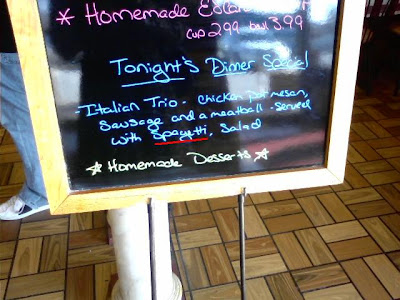 * Homemade
cup 2.99 bowl 3.99
Tonight's Dinner Special
-Italian Trio - Chicken parmesan,
Sausage and a meatball - Served
with Spagetti, Salad
* Homemade Desserts *